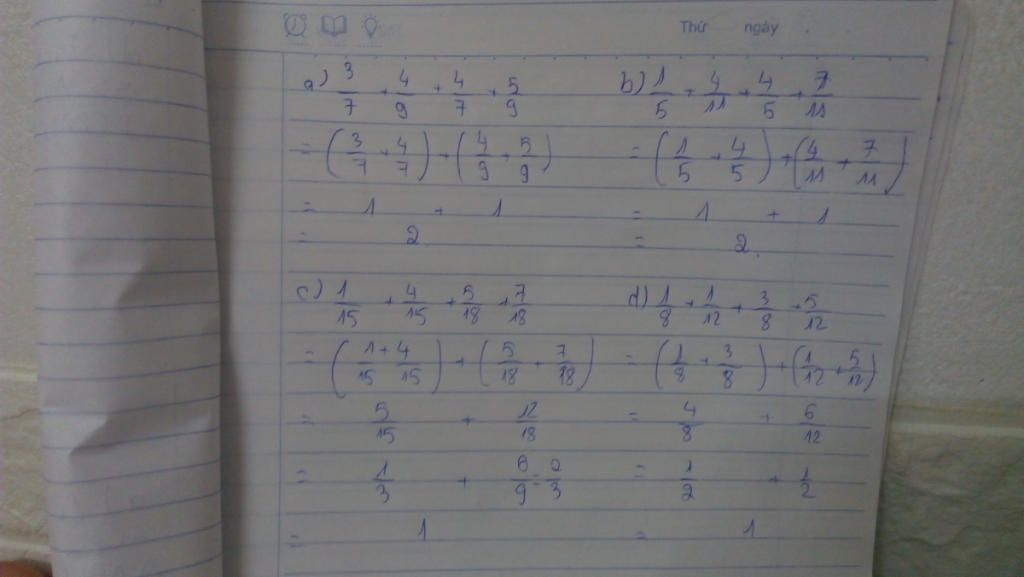 Thứ ngày
a) 3/7 + 4/9 + 4/7 + 5/9
= (3/7 + 4/7) + (4/9 + 5/9)
= 1 + 1
= 2
b) 1/5 + 4/11 + 4/5 + 7/11
= (1/5 + 4/5) + (4/11 + 7/11)
= 1 + 1
= 2.
c) 1/15 + 4/15 + 5/18 + 7/18
= (1/15 + 4/15) + (5/18 + 7/18)
= 5/15 + 12/18
= 1/3 + 6/9 = 2/3
= 1
d) 1/8 + 1/12 + 3/8 + 5/12
= (1/8 + 3/8) + (1/12 + 5/12)
= 4/8 + 6/12
= 1/2 + 1/2
= 1